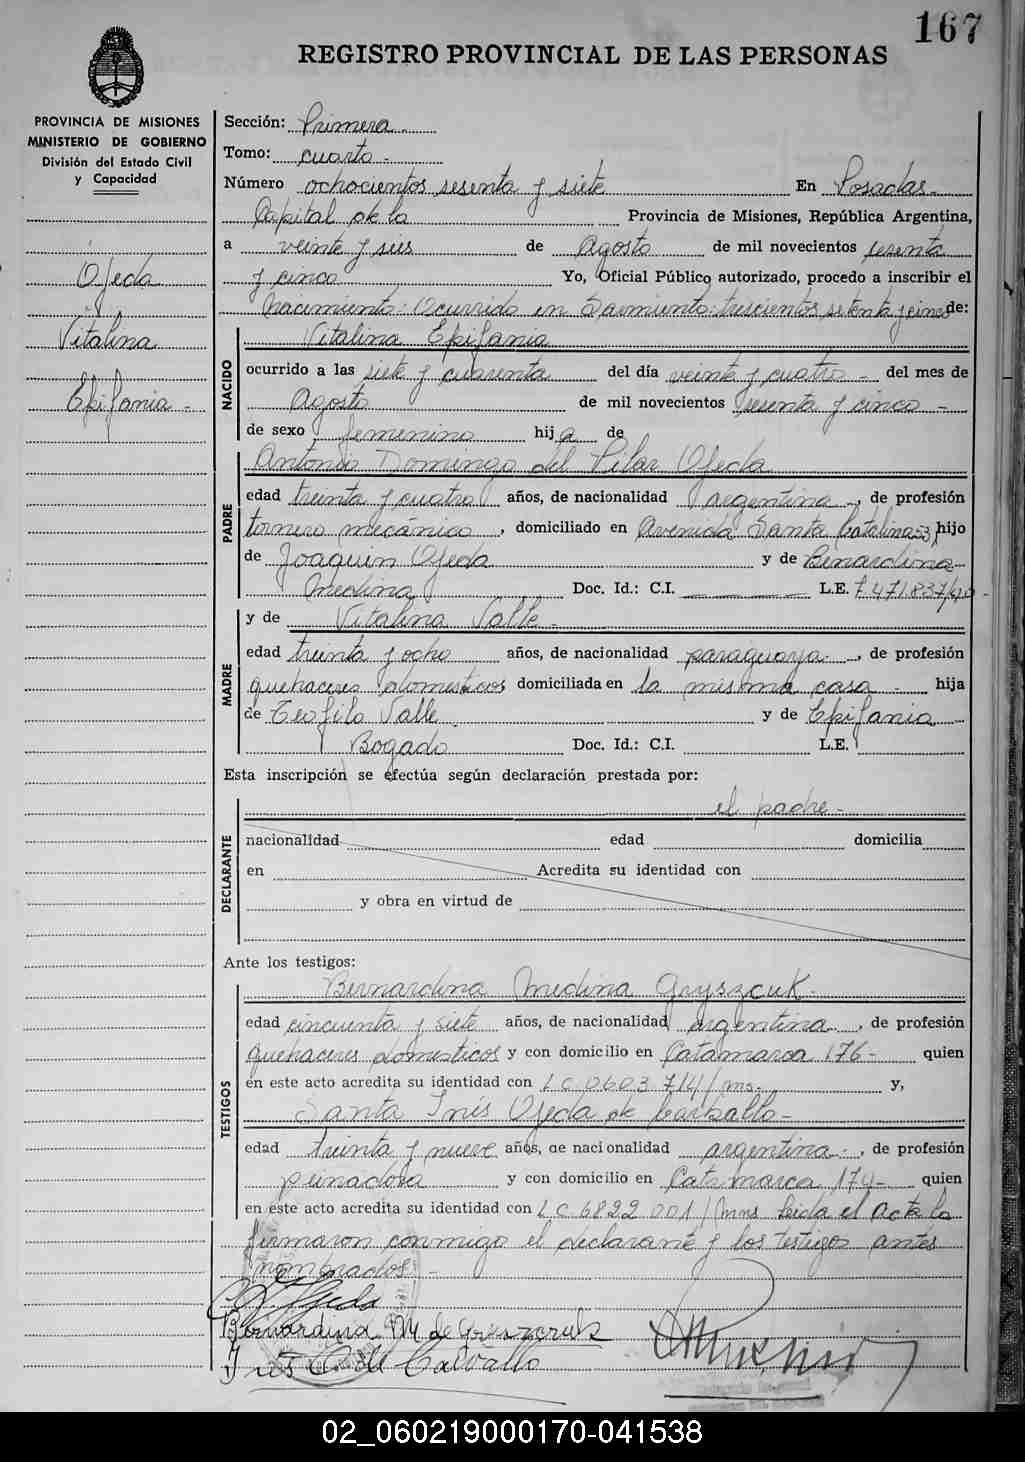 167
REGISTRO PROVINCIAL DE LAS PERSONAS
PROVINCIA DE MISIONES
MINISTERIO DE GOBIERNO
División del Estado Civil
y Capacidad
Ojeda
Vitalina
Epifania -
Sección: Primera
Tomo: cuarto -
Número ochocientos sesenta y siete En Posadas -
Capital de la Provincia de Misiones, República Argentina,
a veinte y seis de Agosto de mil novecientos sesenta
y cinco Yo, Oficial Público autorizado, procedo a inscribir el
Nacimiento: Ocurrido en Sarmiento: trescientos setenta y cinco de:
NACIDO
Vitalina Epifania
ocurrido a las siete y cuarenta del día veinte y cuatro - del mes de
Agosto de mil novecientos sesenta y cinco -
de sexo femenino hija de
PADRE
Antonio Domingo del Pilar Ojeda
edad treinta y cuatro años, de nacionalidad argentina -, de profesión
tornero mecánico, domiciliado en Avenida Santa Catalina 53, hijo
de Joaquin Ojeda y de Bernardina
Medina Doc. Id.: C.I. L.E. 7.471.837/
MADRE
y de Vitalina Valle -
edad treinta y ocho años, de nacionalidad paraguaya -, de profesión
quehaceres domesticos domiciliada en la misma casa - hija
de Teofilo Valle y de Epifania
Bogado Doc. Id.: C.I. L.E.
Esta inscripción se efectúa según declaración prestada por:
DECLARANTE
el padre -
nacionalidad edad domicilia
en Acredita su identidad con
y obra en virtud de
Ante los testigos:
TESTIGOS
Bernardina Medina Gryszcuk -
edad cincuenta y siete años, de nacionalidad argentina -, de profesión
quehaceres domesticos y con domicilio en Catamarca 176 - quien
en este acto acredita su identidad con L C 0603 714/ms. y,
Santa Inés Ojeda de Carballo -
edad treinta y nueve años, de nacionalidad argentina -, de profesión
peinadora y con domicilio en Catamarca 174 - quien
en este acto acredita su identidad con L C 6822 001/mns Leida el acta la
firmaron conmigo el declarante y los testigos antes
nombrados -
Ojeda
Bernardina M. de Gryszczuk
Inés O. de Carvallo
02_060219000170-041538